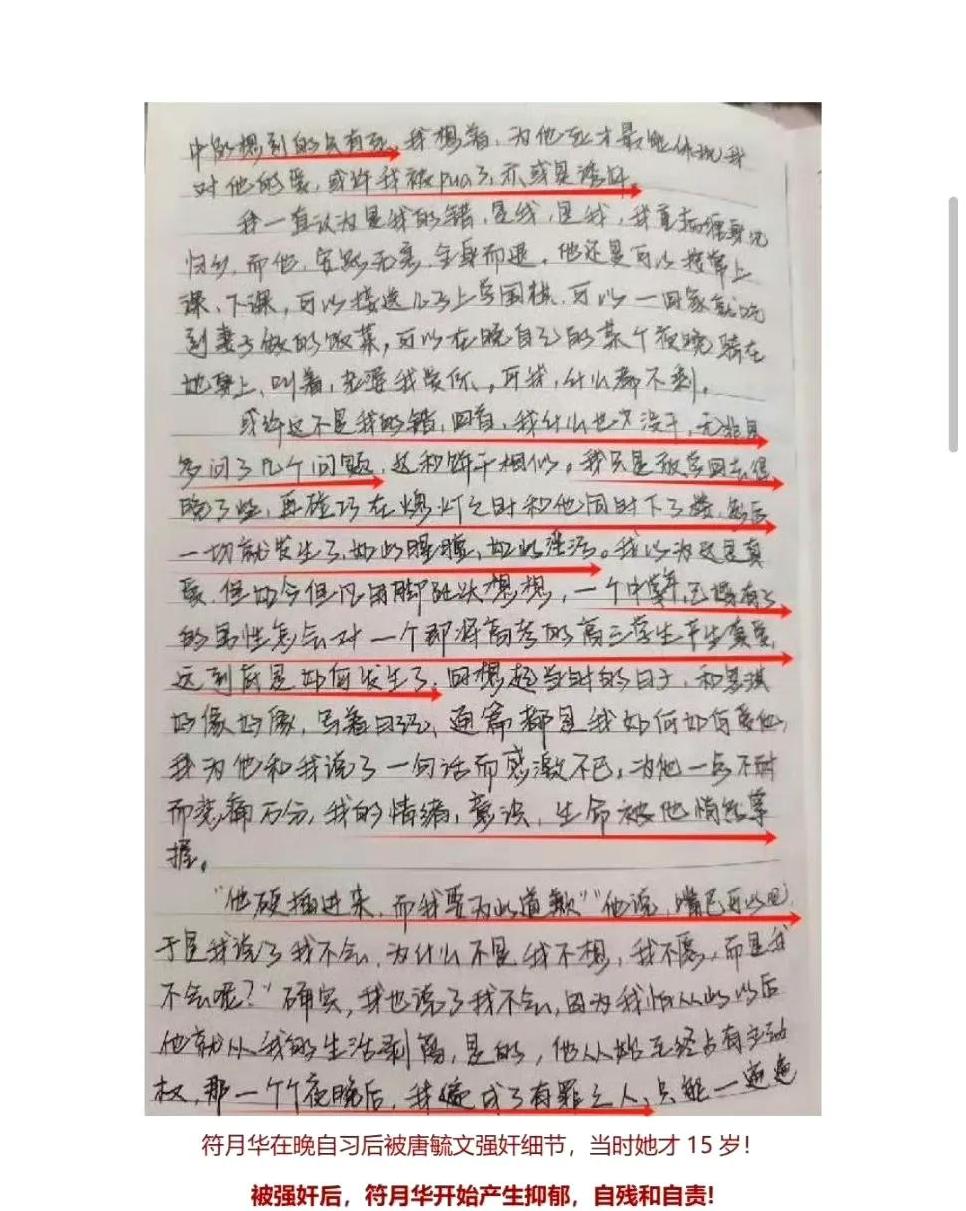 中能想到的只有死，我想着，为他死才最能体现我
对他的爱，或许我被pua了，亦或是诱奸。
我一直认为是我的错，是我，是我，我重病缠身
归乡，而他，安然无恙，全身而退。他还是可以接常上
课、下课，可以接送儿子上学围棋，可以一回家就吃
到妻子做的饭菜，可以在晚自习的某个夜晚骑在
她身上，叫着，我爱你。可我，什么都不剩。
或许这不是我的错，回首，我什么也没干，无非是
多问了几个问题，这和饼干相似。我只是放学回去得
晚了些，再碰巧在熄灯之时和他同时下了楼，然后
一切就发生了，如此腥膻，如此淫活。我以为这是真
爱，但如今但凡用脚趾头想想，一个中年已婚有子
的男性怎么会对一个即将高考的高三学生产生真爱，
这到底是如何发生了，回想起当时的日子，和思琪
好像好像，写着日记，通篇都是我如何如何爱他，
我为他和我说了一句话而感激不已，为他一点不耐
而悲痛万分，我的情绪，意识，生命被他悄然掌
握。
“他硬插进来，而我要为此道歉”“他说，嘴巴可以吧，
于是我说了我不会，为什么不是我不想，我不愿，而是我
不会呢？”确实，我也说了我不会，因为我怕从此以后
他就从我的生活剥离，是的，他从始至终占有主动
权，那一个个夜晚后，我变成了有罪之人，只能一遍遍
符月华在晚自习后被唐毓文强奸细节，当时她才 15 岁！
被强奸后，符月华开始产生抑郁，自残和自责!